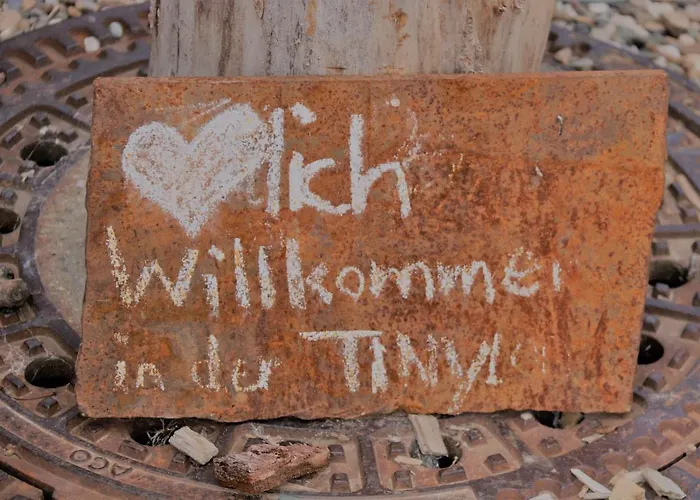 ♥lich
Willkommen
in der TINY
ACO